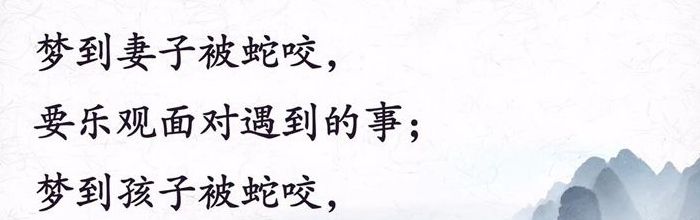 梦到妻子被蛇咬，
要乐观面对遇到的事；
梦到孩子被蛇咬，